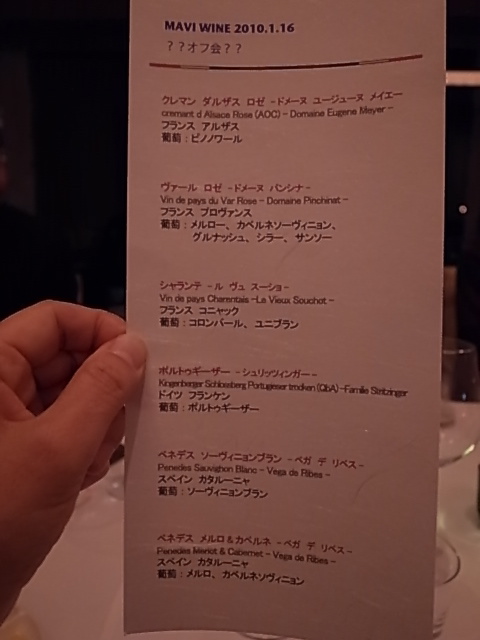 MAVI WINE 2010.1.16
??オフ会??
クレマン ダルザス ロゼ -ドメーヌ ユージューヌ メイエー
cremant d Alsace Rose (AOC) - Domaine Eugene Meyer -
フランス アルザス
葡萄:ピノノワール
ヴァール ロゼ -ドメーヌ パンシナ-
Vin de pays du Var Rose - Domaine Pinchinat -
フランス プロヴァンス
葡萄:メルロー、カベルネソーヴィニョン、
グルナッシュ、シラー、サンソー
シャランテ -ル ヴュ スーショ-
Vin de pays Charentais -Le Vieux Souchot -
フランス コニャック
葡萄:コロンバール、ユニブラン
ポルトゥギーザー -シュリッツィンガー-
Klingenberger Schlossberg Portugieser trocken (QbA) -Familie Stritzinger
ドイツ フランケン
葡萄:ポルトゥギーザー
ペネデス ソーヴィニョンブラン -ベガ デ リベス-
Penedes Sauvignon Blanc - Vega de Ribes -
スペイン カタルーニャ
葡萄:ソーヴィニョンブラン
ペネデス メルロ&カベルネ -ベガ デ リベス-
Penedes Merlot & Cabernet - Vega de Ribes -
スペイン カタルーニャ
葡萄:メルロ、カベルネソヴィニョン